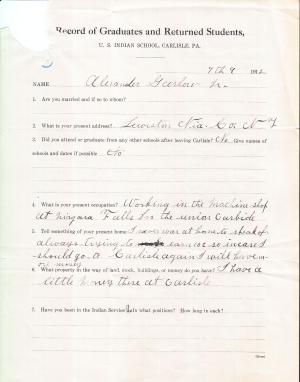 Record of Graduates and Returned Students,
U. S. INDIAN SCHOOL, CARLISLE, PA.
Feb 9 1912
NAME Alexander Jr.
1. Are you married and if so to whom?
2. What is your present address? Lewiston Nia. Co N Y
3. Did you attend or graduate from any other schools after leaving Carlisle? No Give names of
schools and dates if possible No
4. What is your present occupation? Working in the machine shop
at Niagara Falls for the union Carbide
5. Tell something of your present home. I never was at home to speak of
always trying to earn so incase I
should go to Carlisle again I will have
more money
6. What property in the way of land, stock, buildings, or money do you have? I have a
little money there at Carlisle
7. Have you been in the Indian Service? In what positions? How long in each?